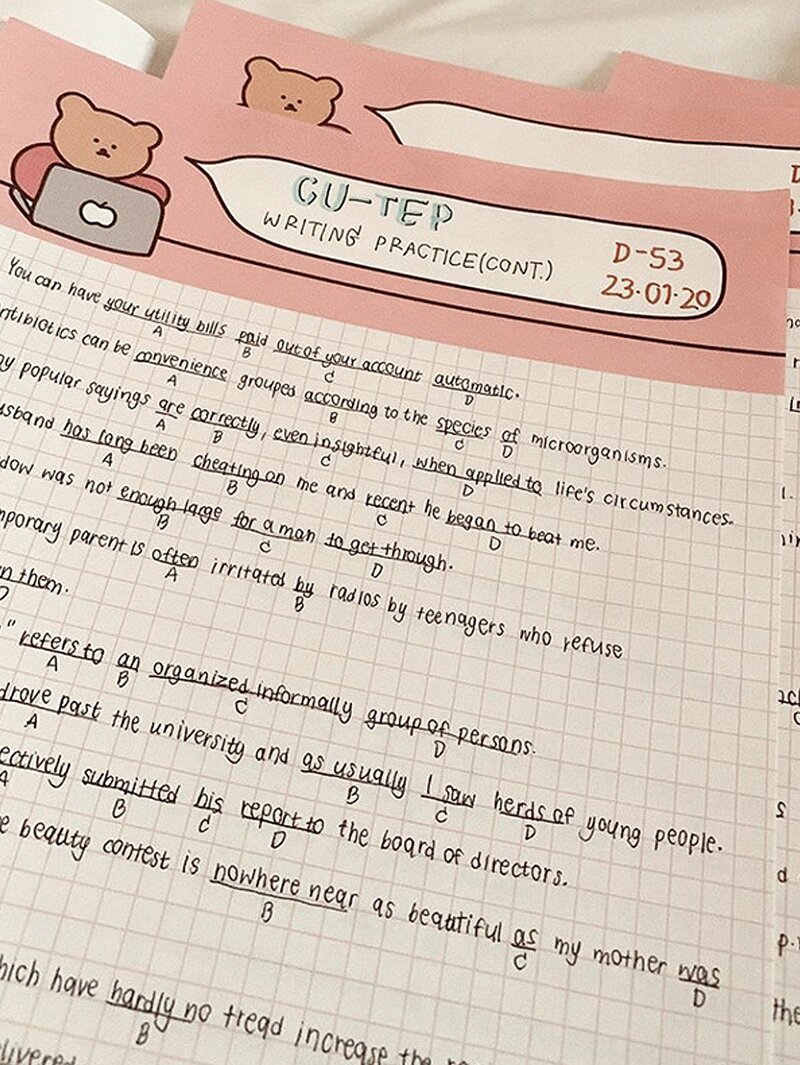 CU-TEP
WRITING PRACTICE(CONT.)
D-53
23.01.20
You can have your utility bills paid out of your account automatic.
A B C D
ntibiotics can be convenience groupes according to the species of microorganisms.
A B C D
y popular sayings are correctly, even insightful, when applied to life's circumstances.
A B C D
sband has long been cheating on me and recent he began to beat me.
A B C D
dow was not enough lage for a man to get through.
B C D
mporary parent is often irritated by radios by teenagers who refuse
A B
n them.
D
" refers to an organized informally group of persons.
A B C D
drove past the university and as usually I saw herds of young people.
A B C D
ectively submitted his report to the board of directors.
A B C D
e beauty contest is nowhere near as beautiful as my mother was
B C D
hich have hardly no tread increase the
B
livered